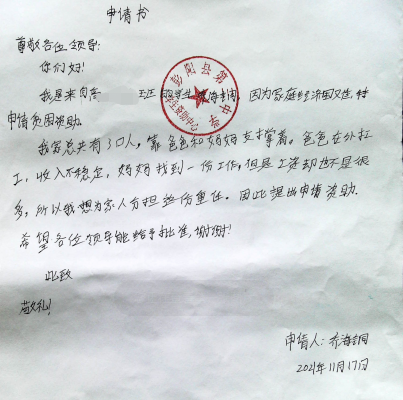 申请书
尊敬各位领导:
你们好!
我是来自高 班 学生 海 因为家庭经济困难 特
申请贫困资助.
我家总共有3口人,靠爸爸和妈妈支撑着。爸爸在外打
工,收入不稳定,妈妈找到一份工作,但是工资却也不是很
多,所以我想为家人分担些份重任。因此提出申请资助.
希望各位领导能给予批准,谢谢!
此致
敬礼!
申请人:乔海
2021年11月17日
彭阳县第 中学
学生资助中心